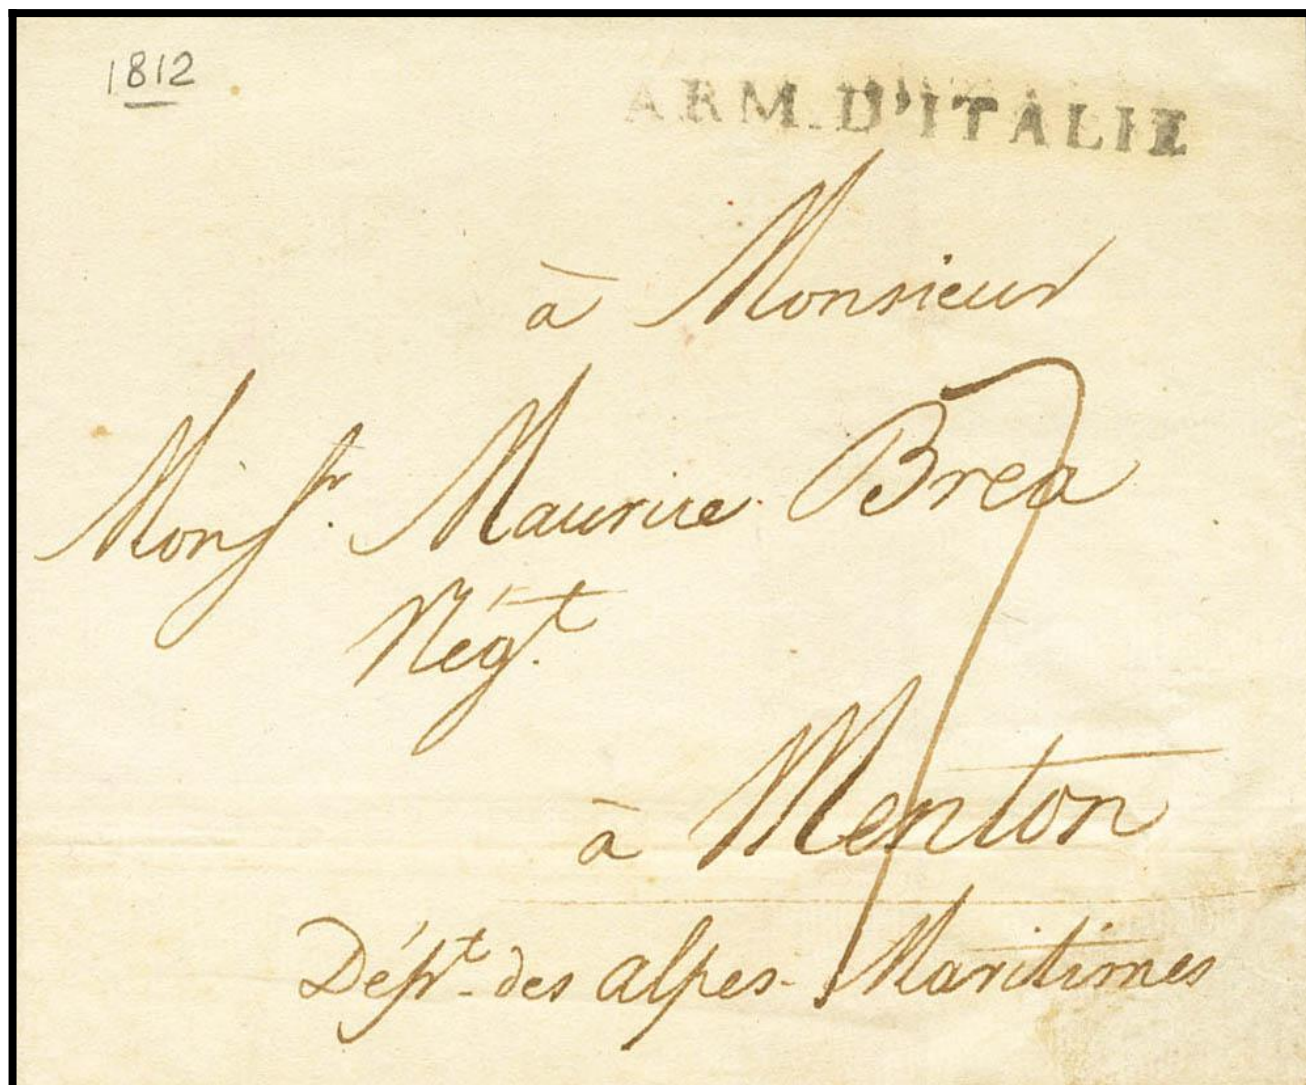 1812
ARM. D'ITALIE
à Monsieur
Monsr. Maurice Brea
Négt.
7
à Menton
Dépt. des alpes-Maritimes